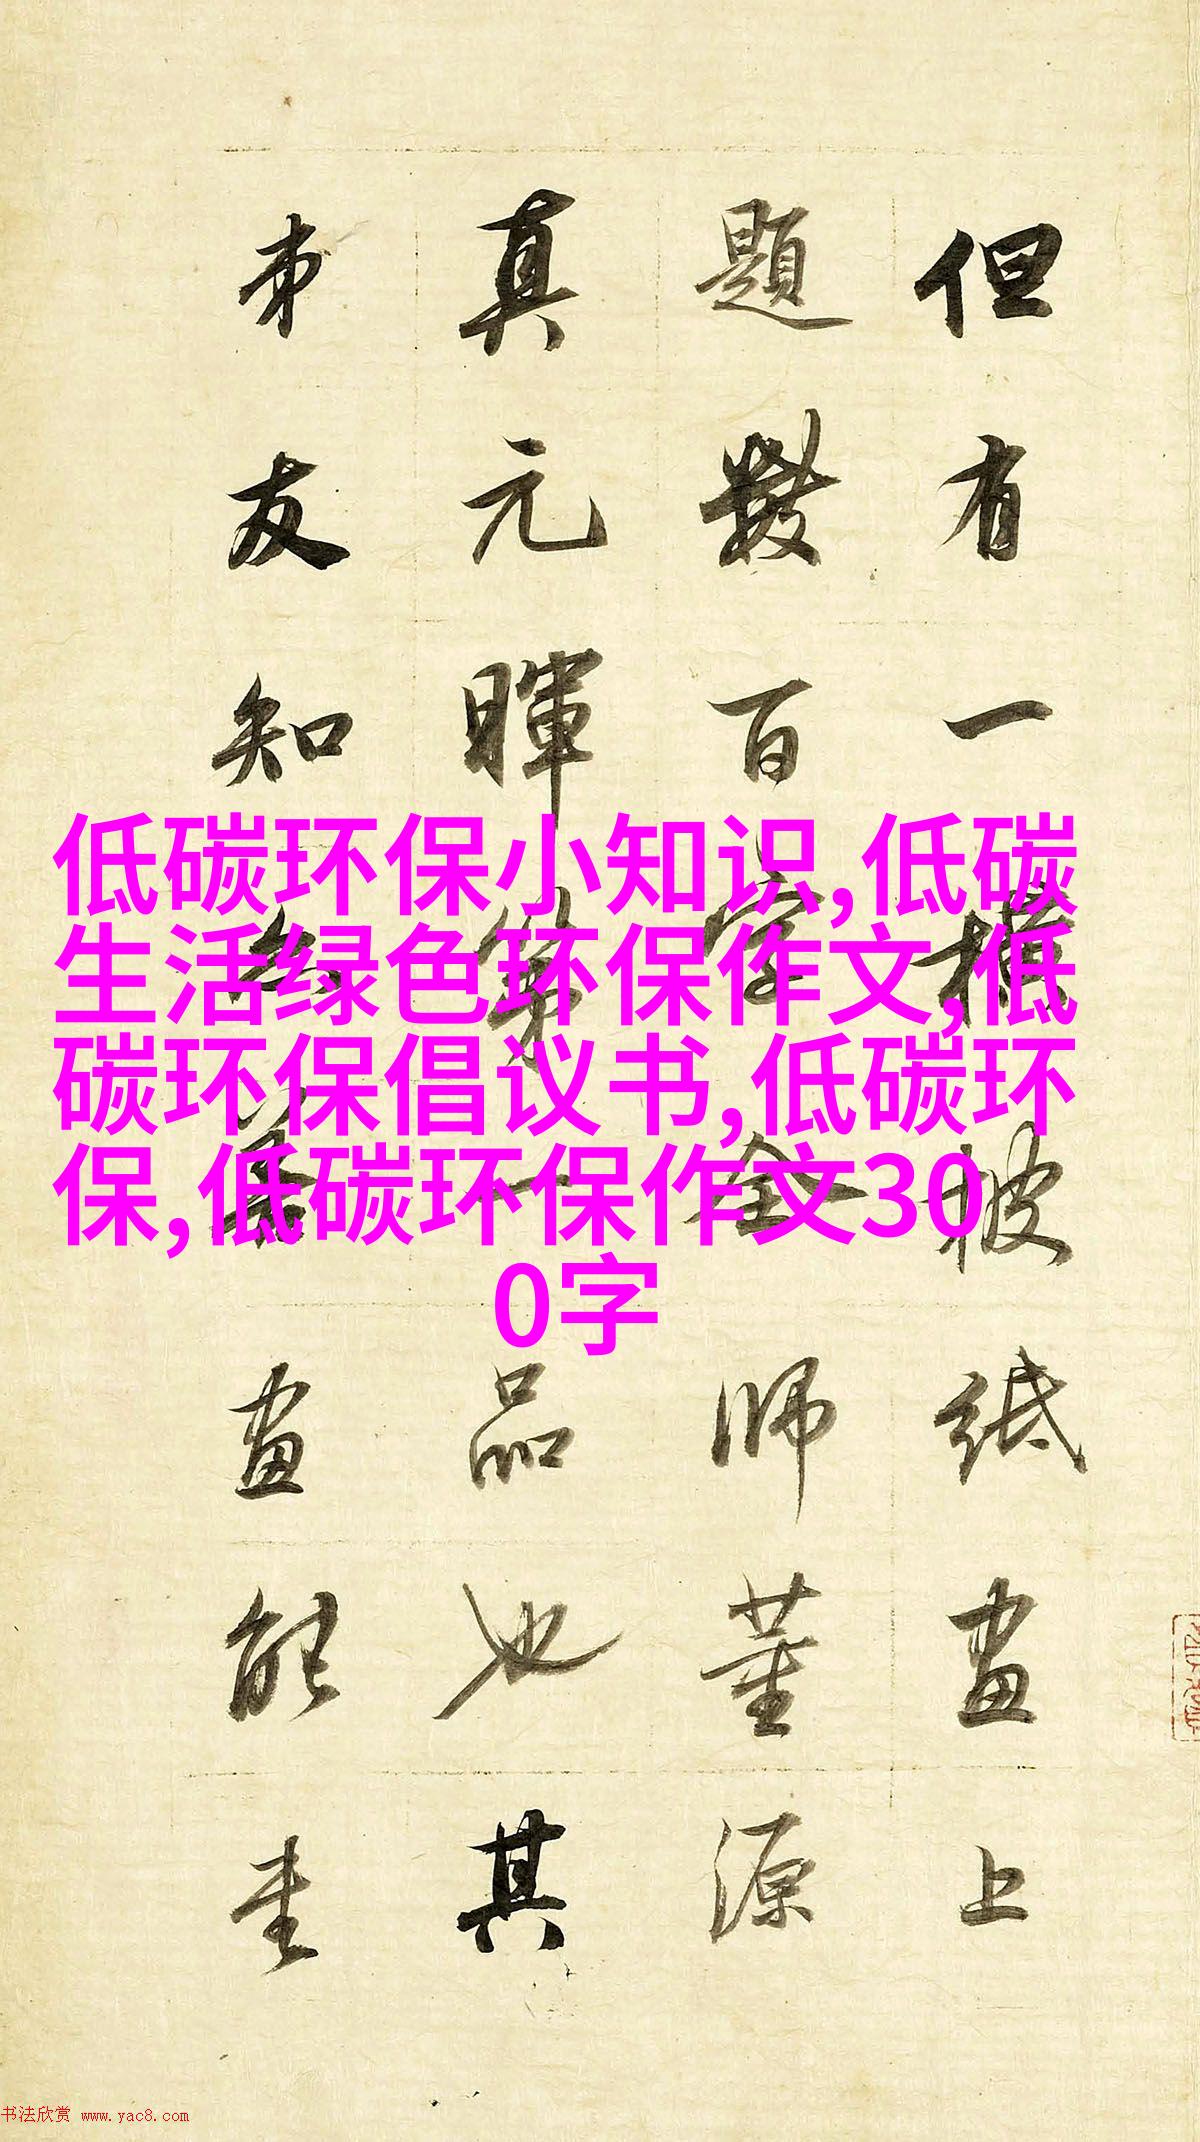 但有一横披纸画上
題數百字全師董源
真元暉第一品也其
弟友知
画能
低碳环保小知识,低碳
生活绿色环保作文,低
碳环保倡议书,低碳环
保,低碳环保作文30
0字
书法欣赏 www.yac8.com